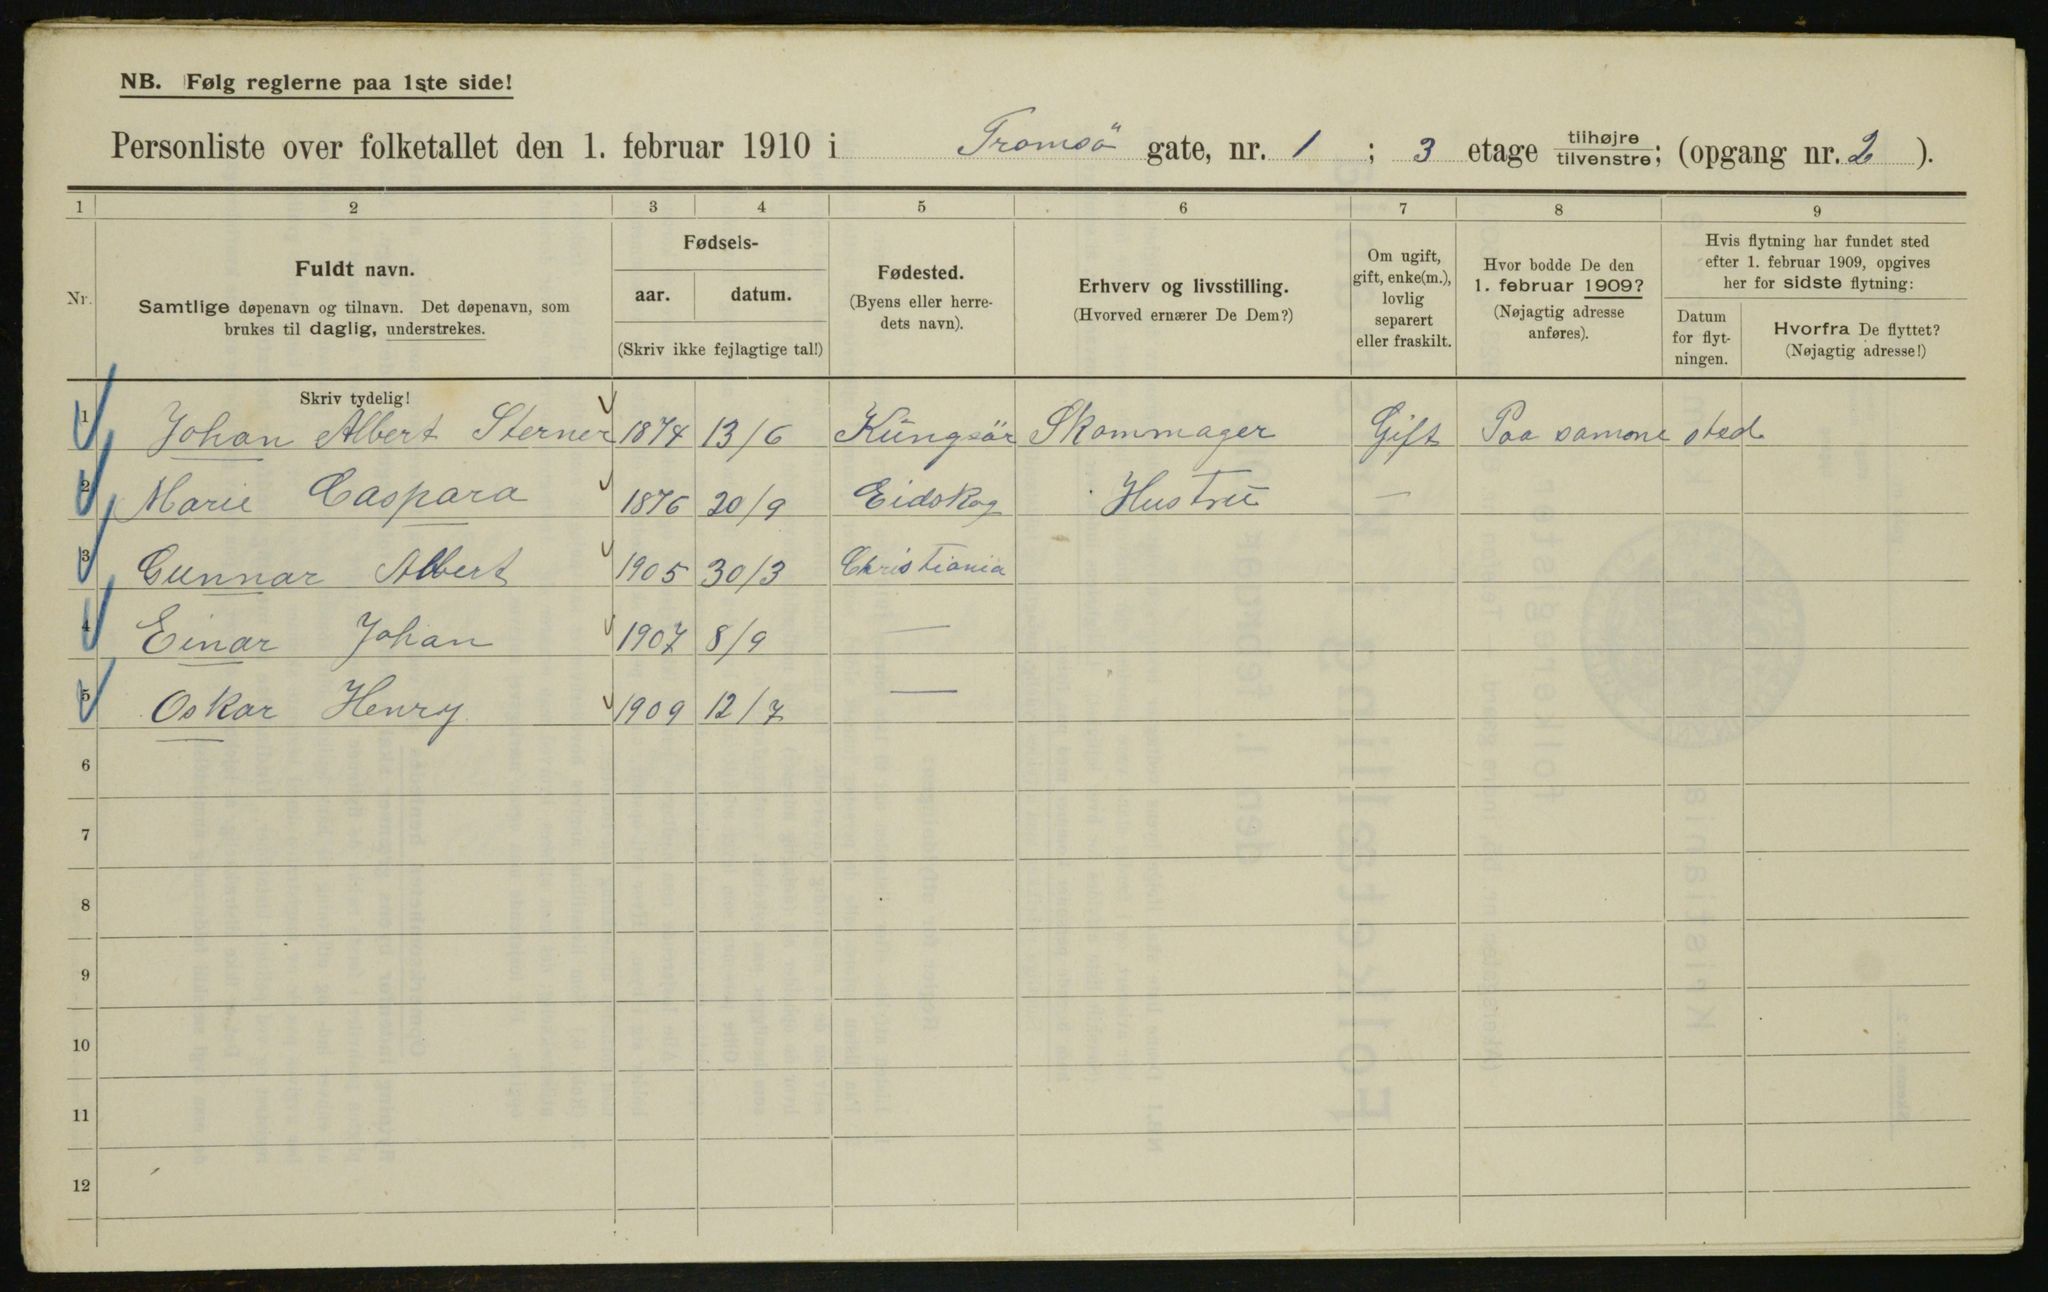 NB. Følg reglerne paa 1ste side!
Personliste over folketallet den 1. februar 1910 i Tromsö gate, nr. 1 ; 3 etage tilhøjre tilvenstre; (opgang nr. 2 ).
1 2 3 4 5 6 7 8 9
Nr.
Fuldt navn.
Samtlige døpenavn og tilnavn. Det døpenavn, som
brukes til daglig, understrekes.
Fødsels-
aar. datum.
(Skriv ikke fejlagtige tal!)
Fødested.
(Byens eller herre-
dets navn).
Erhverv og livsstilling.
(Hvorved ernærer De Dem?)
Om ugift,
gift, enke(m.),
lovlig
separert
eller fraskilt.
Hvor bodde De den
1. februar 1909?
(Nøjagtig adresse
anføres).
Hvis flytning har fundet sted
efter 1. februar 1909, opgives
her for sidste flytning:
Datum
for flyt-
ningen.
Hvorfra De flyttet?
(Nøjagtig adresse!)
Skriv tydelig!
1 Johan Albert Sterner 1874 13/6 Kungsör Skommager Gift Paa samme sted
2 Marie Caspara 1876 20/9 Eidskog Hustru —
3 Gunnar Albert 1905 30/3 Christiania
4 Einar Johan 1907 8/9 —
5 Oskar Henry 1909 12/7 —
6
7
8
9
10
11
12